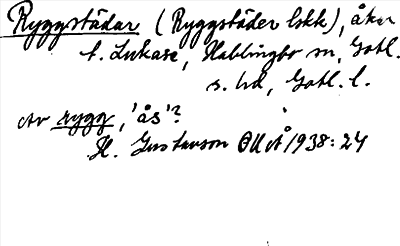 Ryggstädar (Ryggstäder lskk), åker
t. Lukase, Hablingbo sn, Gotl.
s. hd, Gotl. l.
Av rygg, 'ås'?
H. Gustavson OUÅ 1938: 24